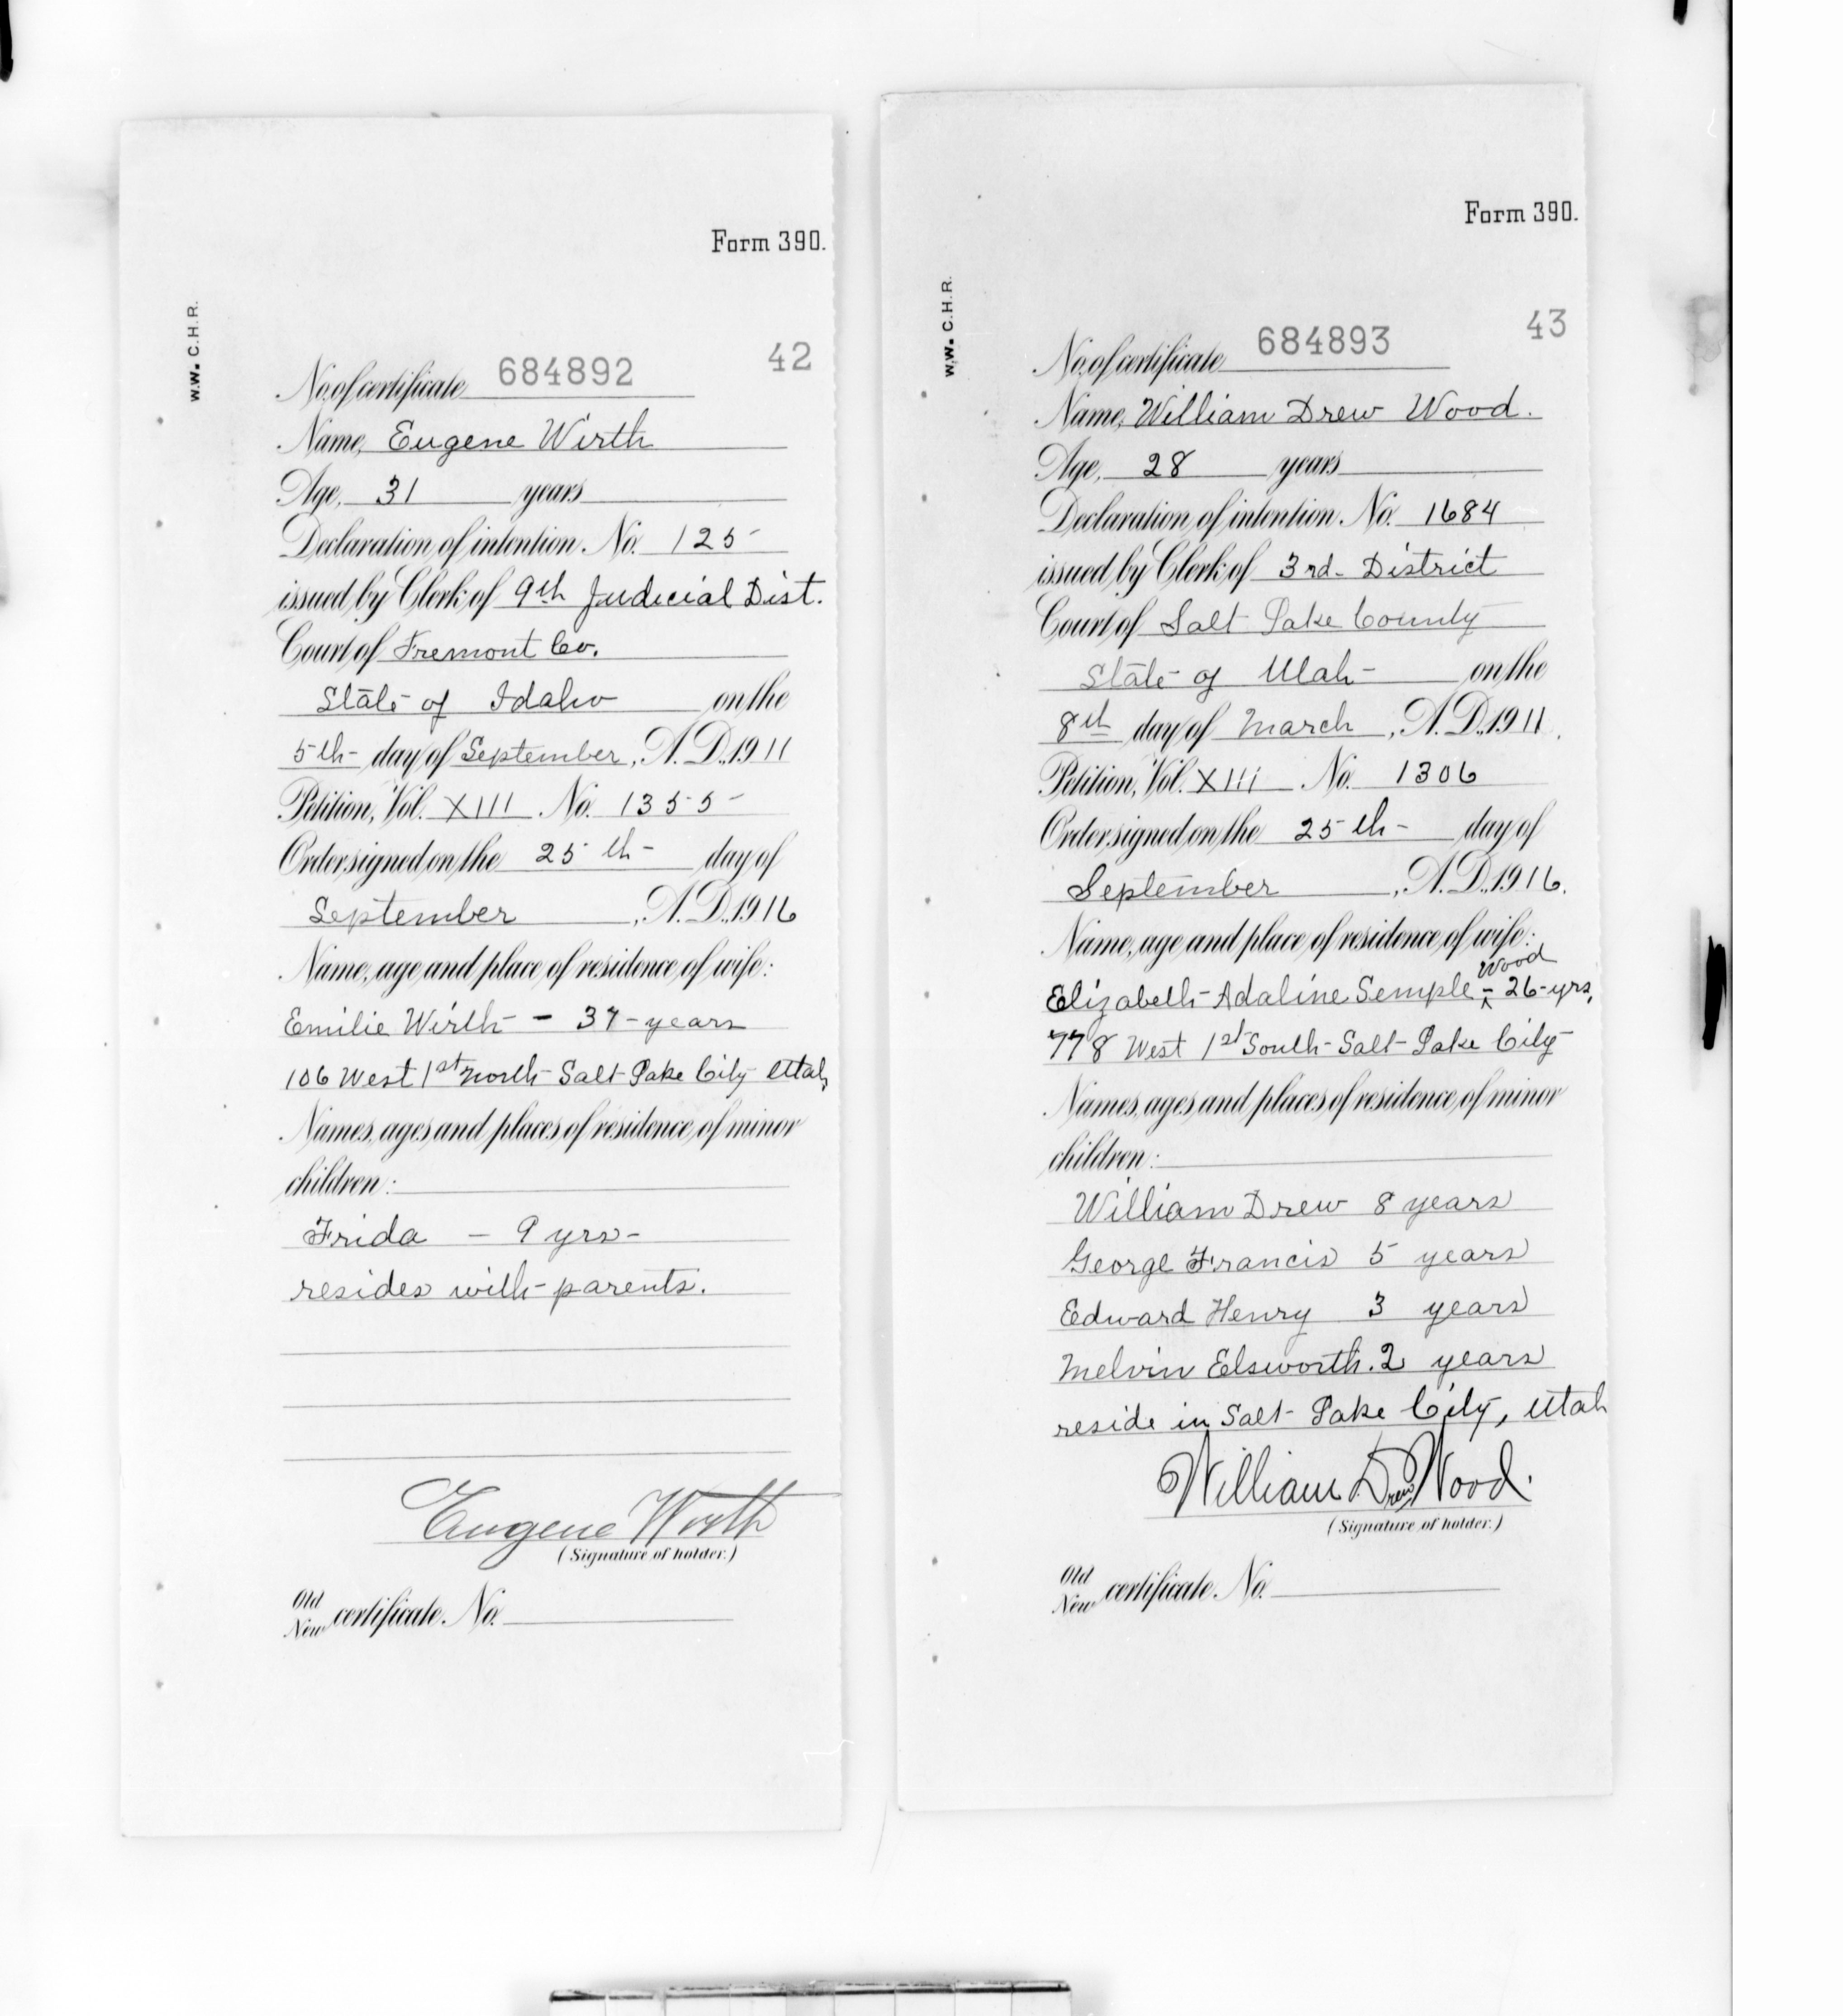 Form 390.
W.W. C.H.R.
42
No. of certificate 684892
Name, Eugene Wirth
Age, 31 years
Declaration of intention No. 125
issued by Clerk of 9th Judicial Dist.
Court of Fremont Co.
State of Idaho on the
5th day of September, A.D. 1911
Petition, Vol. XIII No. 1355
Order signed on the 25th day of
September, A.D. 1916
Name, age and place of residence of wife:
Emilie Wirth - 37 - years
106 West 1st North Salt Lake City Utah,
Names, ages and places of residence of minor
children:
Frida - 9 yrs -
resides with parents.
Eugene Wirth
(Signature of holder.)
Old
New certificate No.
Form 390.
W.W. C.H.R.
43
No. of certificate 684893
Name, William Drew Wood.
Age, 28 years
Declaration of intention No. 1684
issued by Clerk of 3rd District
Court of Salt Lake County
State of Utah on the
8th day of March, A.D. 1911.
Petition, Vol. XIII No. 1306
Order signed on the 25th day of
September, A.D. 1916.
Name, age and place of residence of wife:
Wood
Elizabeth Adaline Semple - ^ 26-yrs,
778 West 1st South - Salt Lake City
Names, ages and places of residence of minor
children:
William Drew 8 years
George Francis 5 years
Edward Henry 3 years
Melvin Elsworth. 2 years
reside in Salt Lake City, Utah
William Drew Wood.
(Signature of holder.)
Old
New certificate No.